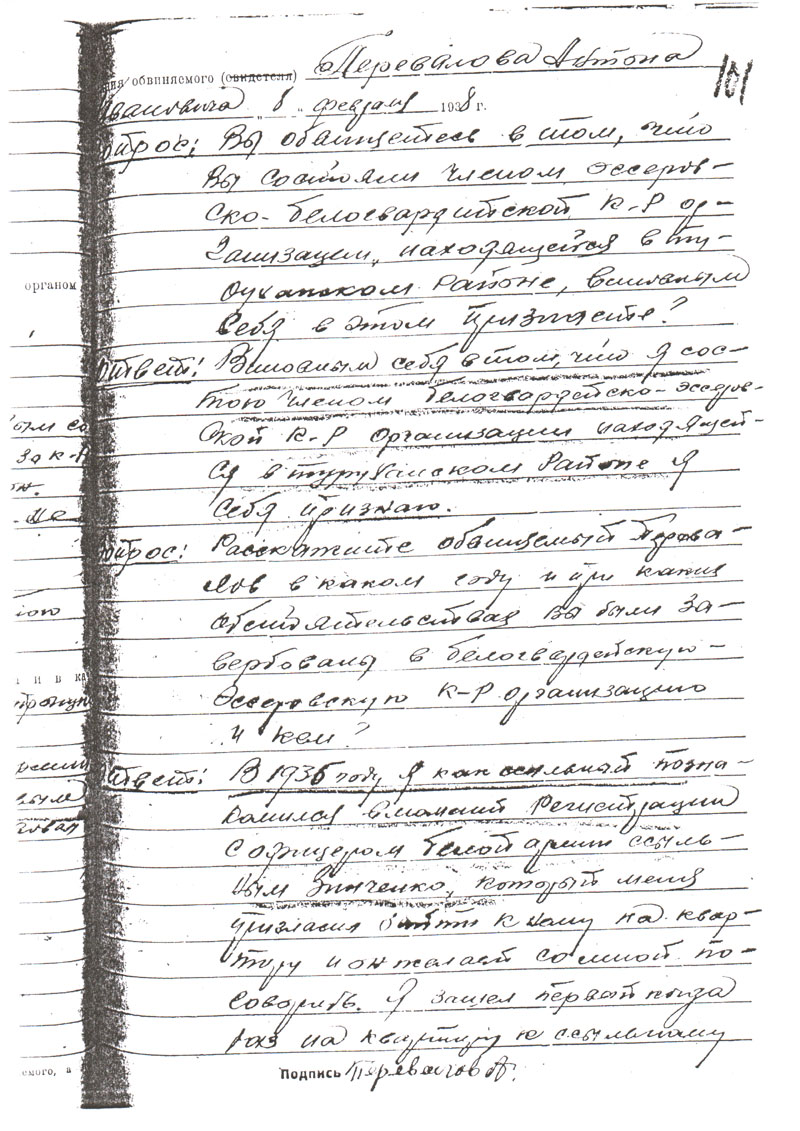 ния обвиняемого (свидетеля) Перевалова Антона
101
Ивановича „ 8 „ февраля 1938 г.
опрос: Вы обвиняетесь в том, что
Вы состояли членом эссеров-
ско-белогвардитской К-Р ор-
ганизации, находящейся в Ту-
руханском Районе, виновным
себя в этом признаете?
ответ: Виновным себя в том, что я сос-
тою членом белогвардейско-эссеров-
ской К-Р организации находящей-
ся в туруханском Районе я
себя признаю.
опрос: Расскажите обвиняемый Перева-
лов в каком году и при каких
обстоятельствах вы были за-
вербованы в белогвардейскую-
эссеровскую К-Р организацию
и кем?
ответ: В 1935 году я как ссыльный позна-
комился в момент Регистрации
с офицером белой армии ссыль-
ным Зинченко, который меня
пригласил к нему на квар-
тиру и он желает со мной по-
говорить. Я зашел первый
раз на квартиру к ссыльному
Подпись Перевалов А.
органом
ым со
за к-р
- не
и в ка
емого, а